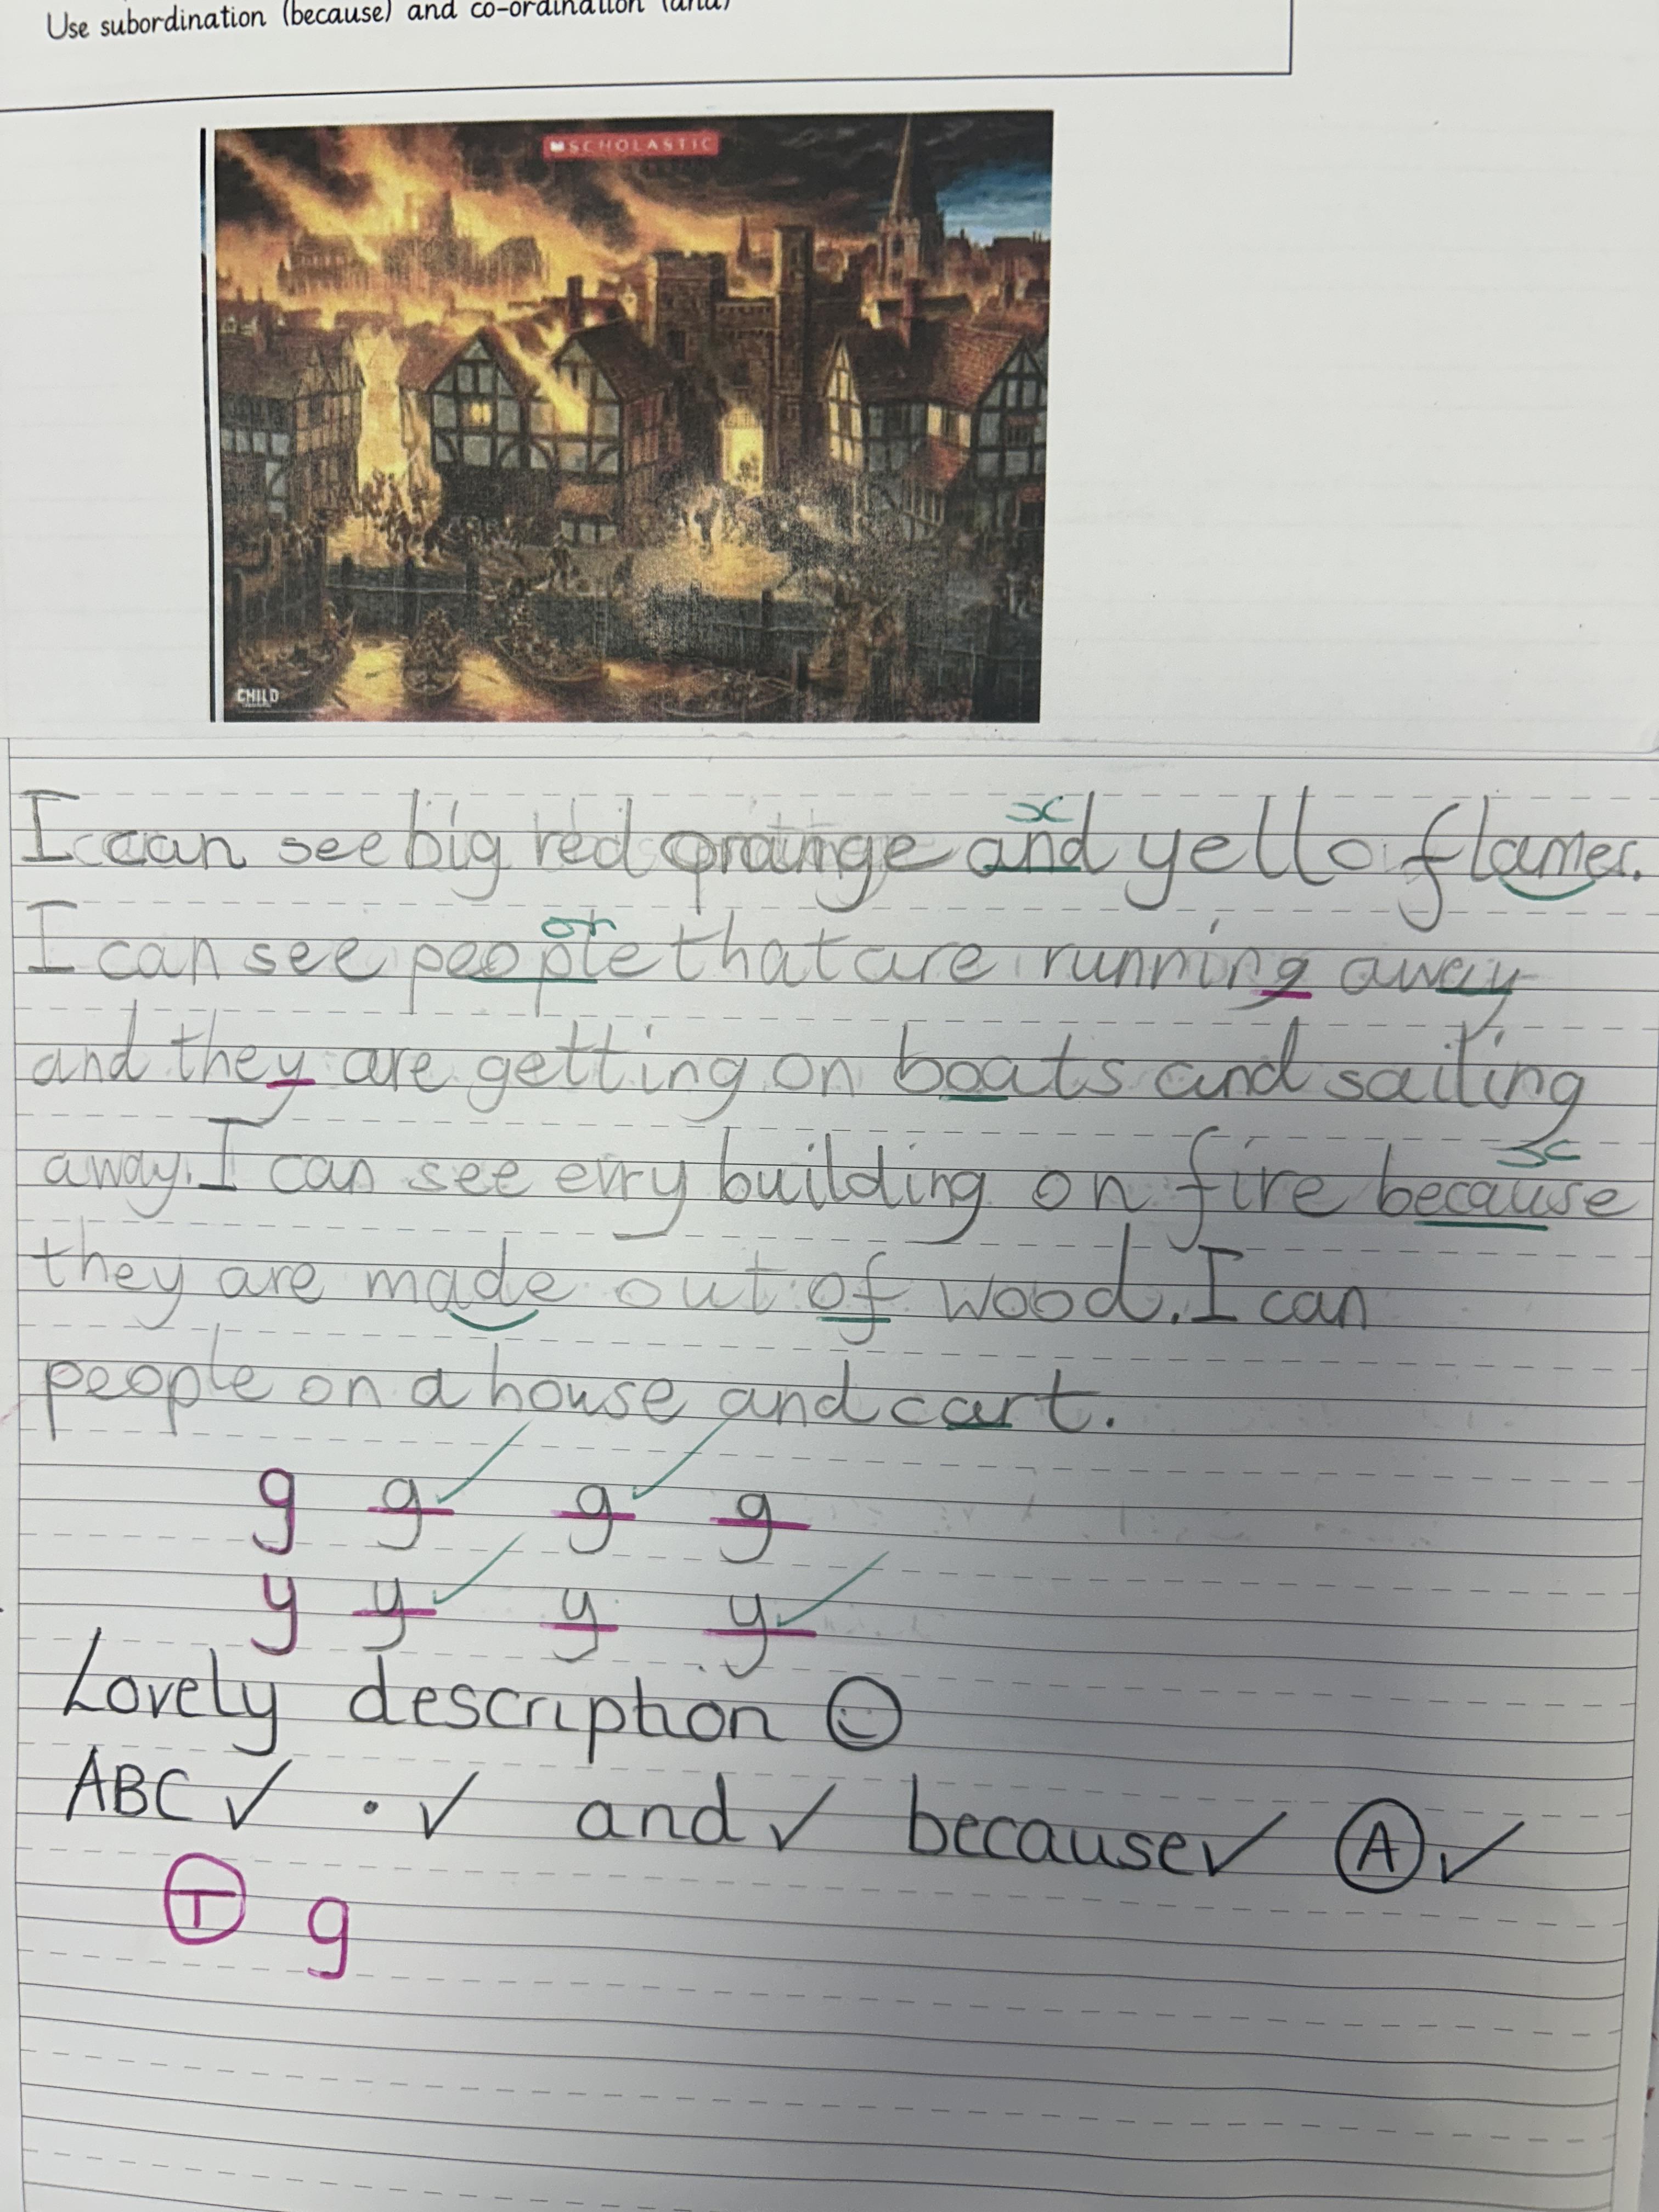 Use subordination (because) and co-ordination (and)
SCHOLASTIC
CHILD
I can see big red orange and yello flames.
I can see people that are running away
and they are getting on boats and sailing
away. I can see evry building on fire because
they are made out of wood. I can
people on a house and cart.
g g g g
y y y y
Lovely description
ABC ✓ . ✓ and ✓ because ✓ A ✓
T g